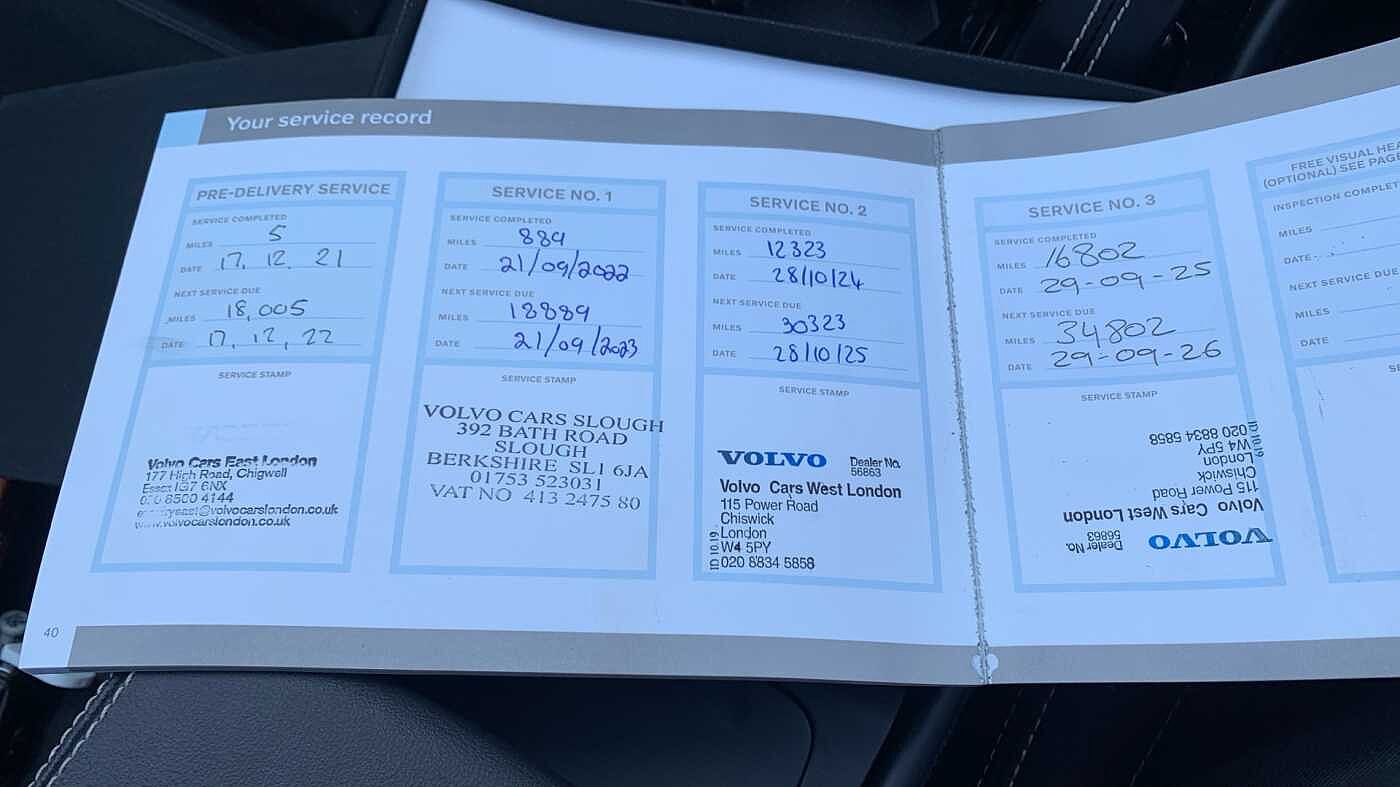 Your service record
PRE-DELIVERY SERVICE
SERVICE COMPLETED
MILES 5
DATE 17. 12. 21
NEXT SERVICE DUE
MILES 18,005
DATE 17, 12, 22
SERVICE STAMP
Volvo Cars East London
177 High Road, Chigwell
Essex IG7 6NX
020 8500 4144
@volvocarslondon.co.uk
www.volvocarslondon.co.uk
SERVICE NO. 1
SERVICE COMPLETED
MILES 889
DATE 21/09/2022
NEXT SERVICE DUE
MILES 18889
DATE 21/09/2023
SERVICE STAMP
VOLVO CARS SLOUGH
392 BATH ROAD
SLOUGH
BERKSHIRE SL1 6JA
01753 523031
VAT NO 413 2475 80
SERVICE NO. 2
SERVICE COMPLETED
MILES 12323
DATE 28/10/24
NEXT SERVICE DUE
MILES 30323
DATE 28/10/25
SERVICE STAMP
VOLVO Dealer No.
56863
Volvo Cars West London
115 Power Road
Chiswick
London
W4 5PY
020 8834 5858
ID 10.19
SERVICE NO. 3
SERVICE COMPLETED
MILES 16802
DATE 29-09-25
NEXT SERVICE DUE
MILES 34802
DATE 29-09-26
SERVICE STAMP
VOLVO Dealer No.
56863
Volvo Cars West London
115 Power Road
Chiswick
London
W4 5PY
020 8834 5858
ID 10.19
FREE VISUAL HEA
(OPTIONAL) SEE PAG
INSPECTION COMPLET
MILES
DATE
NEXT SERVICE DUE
MILES
DATE
SE
40